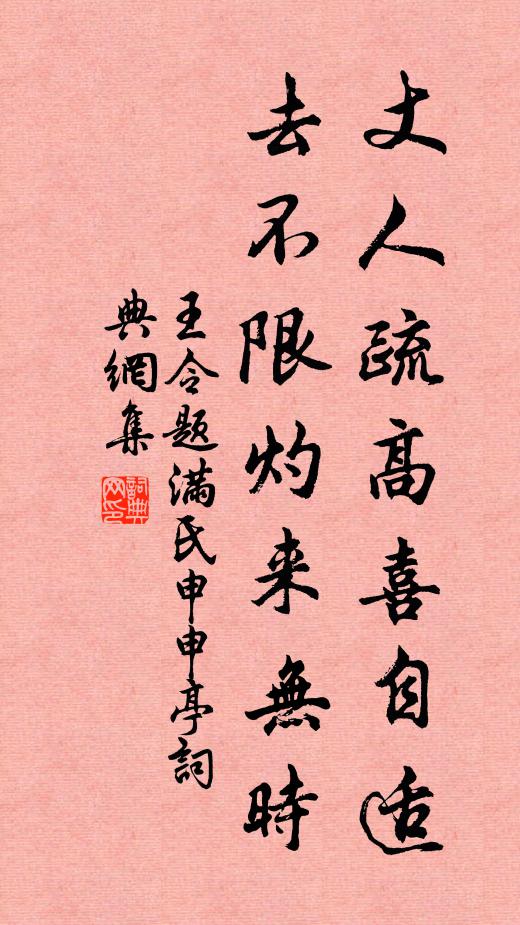 丈人疏高喜自适
去不限灼来無時
王令题满氏申申亭詞
典網集
詞典网印